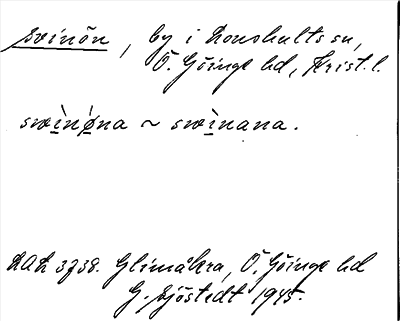 Svinön, by i Lonshults sn,
Ö. Göinge hd, Krist. l.
swìnǿna ~ swìnana.
LAL 3738. Glimåkra, Ö. Göinge hd
G. Sjöstedt 1945.